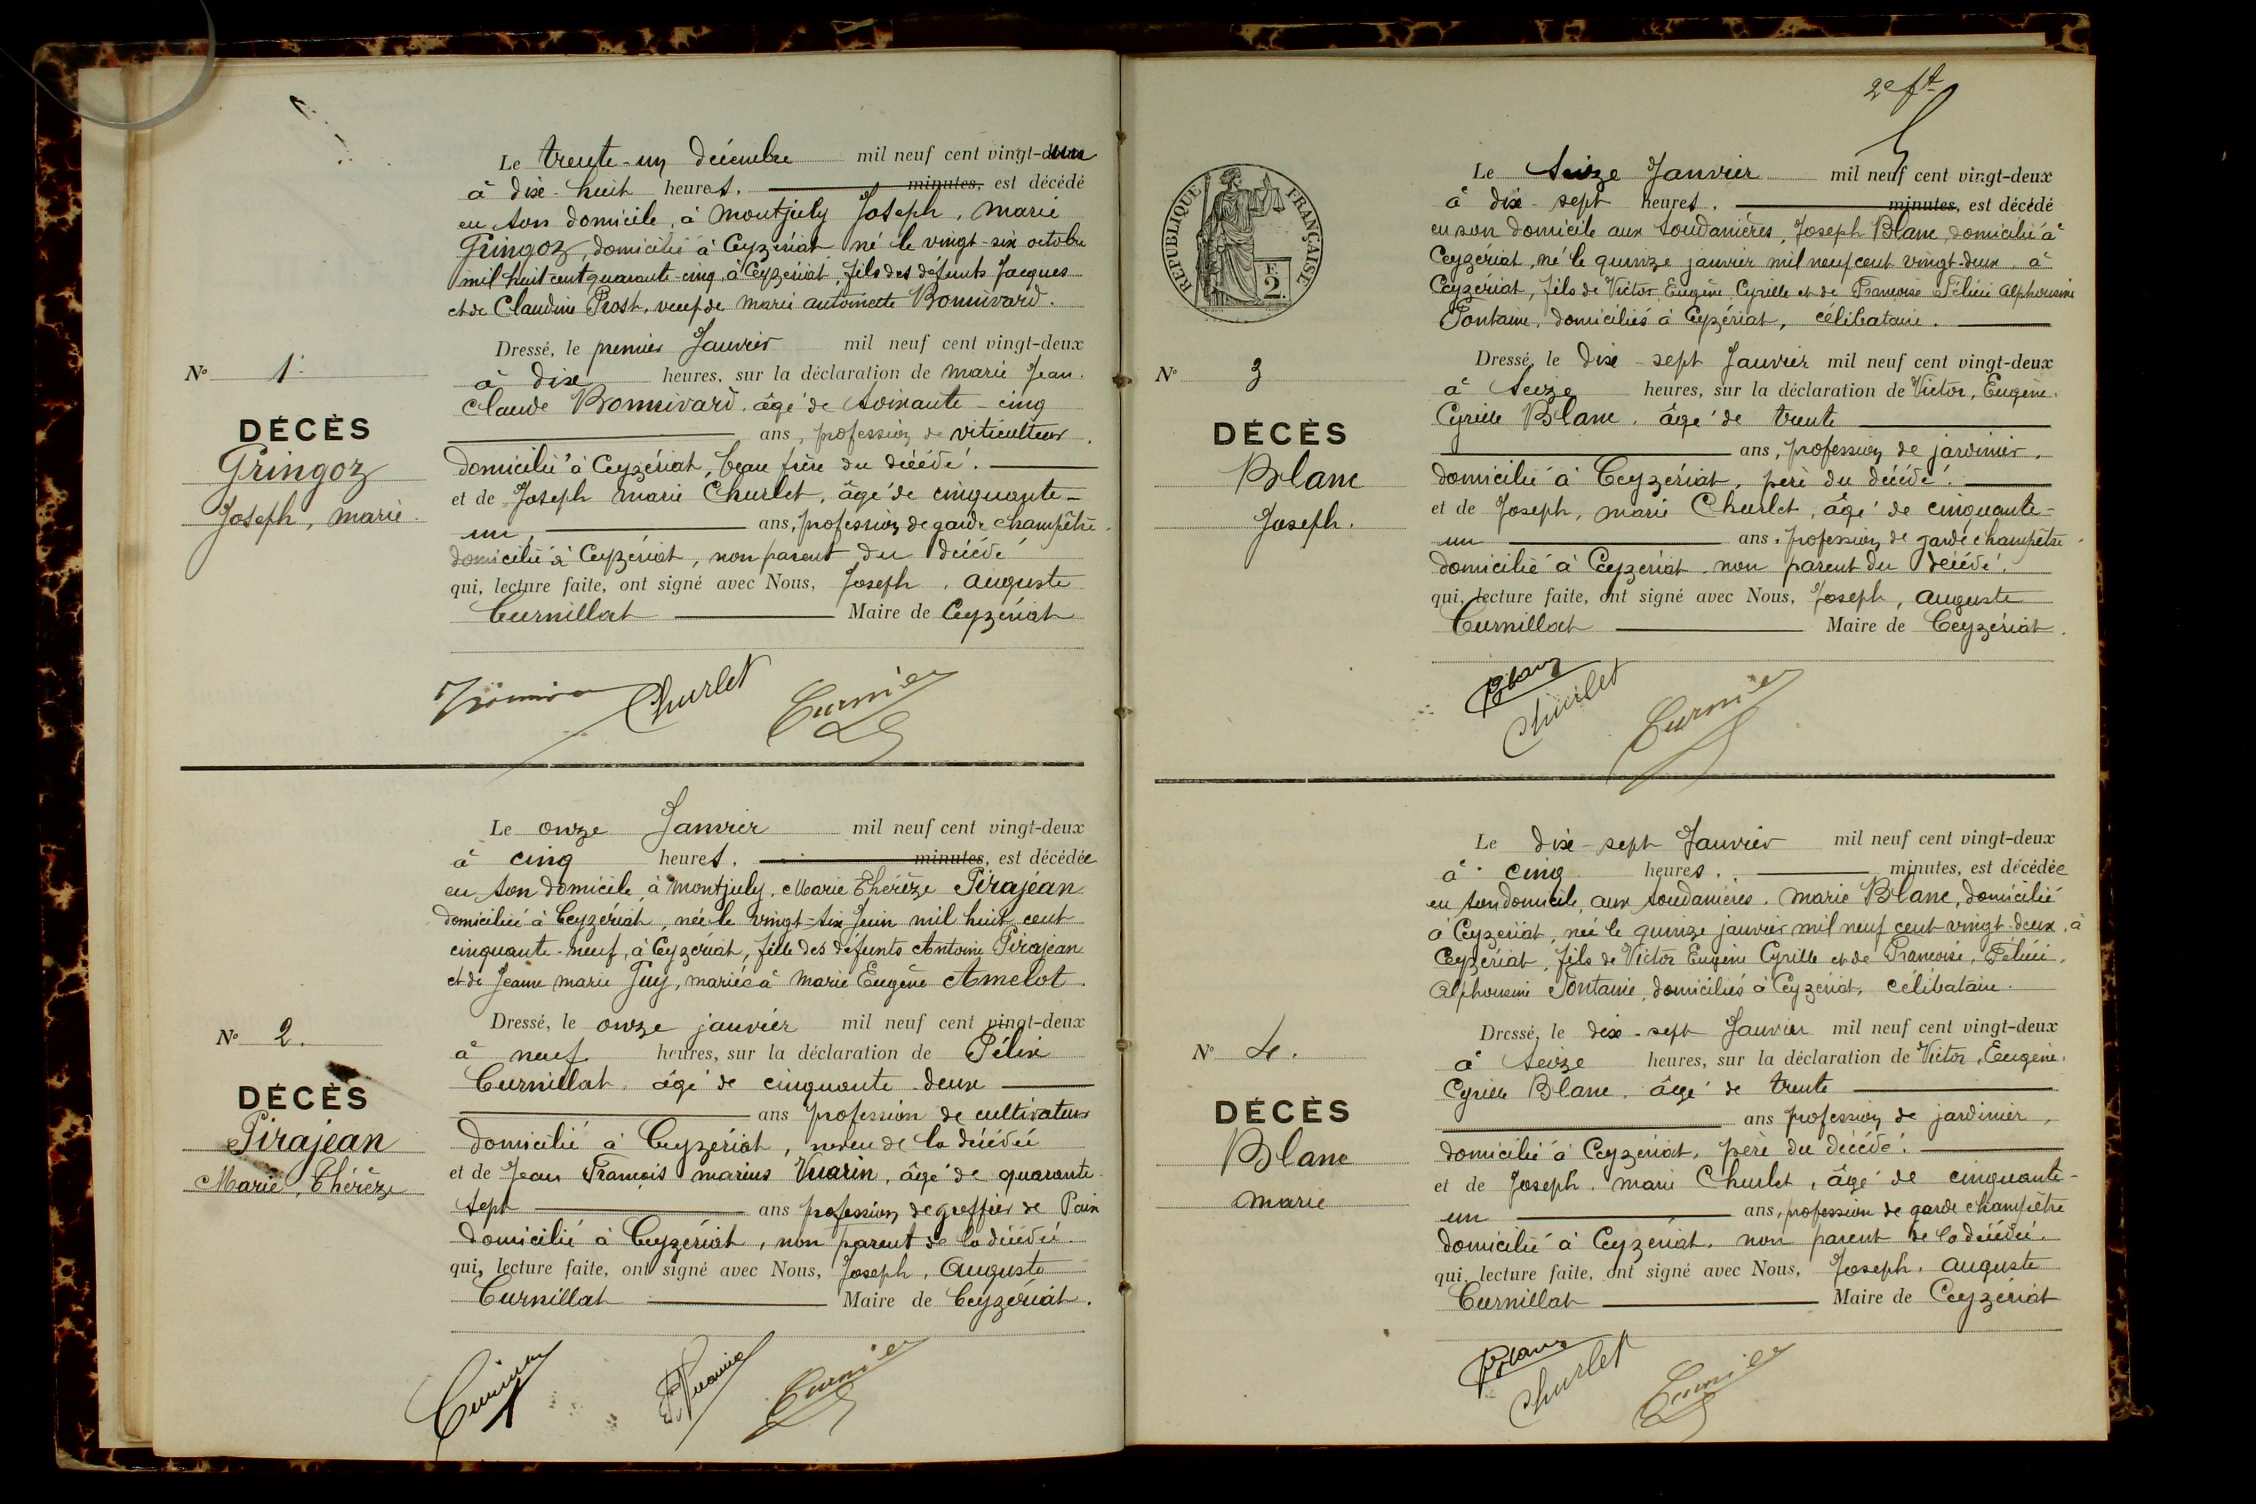 Le trente-un décembre mil neuf cent vingt-un
à dix-huit heures. minutes, est décédé
en son domicile, à Montjuly Joseph, Marie
Gringoz, domicilié à Ceyzériat né le vingt-six octobre
mil huit cent quarante-cinq, à Ceyzériat, fils des défunts Jacques
et de Claudine Prost, veuf de Marie Antoinette Bonnivard.
Dressé, le premier Janvier mil neuf cent vingt-deux
à dix heures, sur la déclaration de Marie Jean
Claude Bonnivard, âgé de soixante-cinq
ans, profession de viticulteur,
domicilié à Ceyzériat, beau frère du décédé.
et de Joseph Marie Churlet, âgé de cinquante-
un, ans, profession de garde champêtre.
domicilié à Ceyzériat, non parent du décédé
qui, lecture faite, ont signé avec Nous, Joseph, Auguste
Curnillat Maire de Ceyzériat
N° 1.
DÉCÈS
Gringoz
Joseph, Marie.
Churlet
Le onze Janvier mil neuf cent vingt-deux
à cinq heures. minutes, est décédée
en son domicile à Montjuly, Marie Thérèze Pirajean
domiciliée à Ceyzériat, née le vingt-six Juin mil huit cent
cinquante-neuf, à Ceyzériat, fille des défunts Antoine Pirajean
et de Jeanne Marie Guy, mariée à Marie Eugène Amelot.
Dressé, le onze janvier mil neuf cent vingt-deux
à neuf heures, sur la déclaration de Félix
Curnillat, âgé de cinquante-deux
ans profession de cultivateur
domicilié à Ceyzériat, neveu de la décédée
et de Jean François Marius Vuarin, âgé de quarante
sept ans profession de greffier de Paix
domicilié à Ceyzériat, non parent de la décédée.
qui, lecture faite, ont signé avec Nous, Joseph, Auguste
Curnillat Maire de Ceyzériat.
N° 2.
DÉCÈS
Pirajean
Marie, Thérèze
2e ft
RÉPUBLIQUE FRANÇAISE
F.
2
Le Seize Janvier mil neuf cent vingt-deux
à dix-sept heures. minutes, est décédé
en son domicile aux Soudanières, Joseph Blanc, domicilié à
Ceyzériat, né le quinze janvier mil neuf cent vingt-deux, à
Ceyzériat, fils de Victor, Eugène, Cyrille et de Francoise Félicie Alphonsine
Fontaine, domiciliés à Ceyzériat, célibataire.
Dressé, le dix-sept Janvier mil neuf cent vingt-deux
à Seize heures, sur la déclaration de Victor, Eugène.
Cyrille Blanc, âgé de trente
ans, profession de jardinier.
domicilié à Ceyzériat, père du décédé.
et de Joseph, Marie Churlet, âgé de cinquante-
un ans, profession de garde champêtre
domicilié à Ceyzériat, non parent du décédé.
qui, lecture faite, ont signé avec Nous, Joseph, Auguste
Curnillat Maire de Ceyzériat.
N° 3
DÉCÈS
Blanc
Joseph.
Blanc
Churlet
Le dix-sept Janvier mil neuf cent vingt-deux
à cinq heures. minutes, est décédée
en son domicile, aux Soudanières. Marie Blanc, domicilié
à Ceyzériat, née le quinze janvier mil neuf cent vingt-deux, à
Ceyzériat, fils de Victor Eugène Cyrille et de Francoise, Félicie,
Alphonsine Fontaine, domiciliés à Ceyzériat, célibataire.
Dressé, le dix-sept Janvier mil neuf cent vingt-deux
à Seize heures, sur la déclaration de Victor, Eugène.
Cyrille Blanc, âgé de trente
ans profession de jardinier,
domicilié à Ceyzériat, père du décédé.
et de Joseph, Marie Churlet, âgé de cinquante-
un ans, profession de garde champêtre
domicilié à Ceyzériat, non parent de la décédée.
qui, lecture faite, ont signé avec Nous, Joseph, Auguste
Curnillat Maire de Ceyzériat
N° 4.
DÉCÈS
Blanc
Marie
Blanc
Churlet